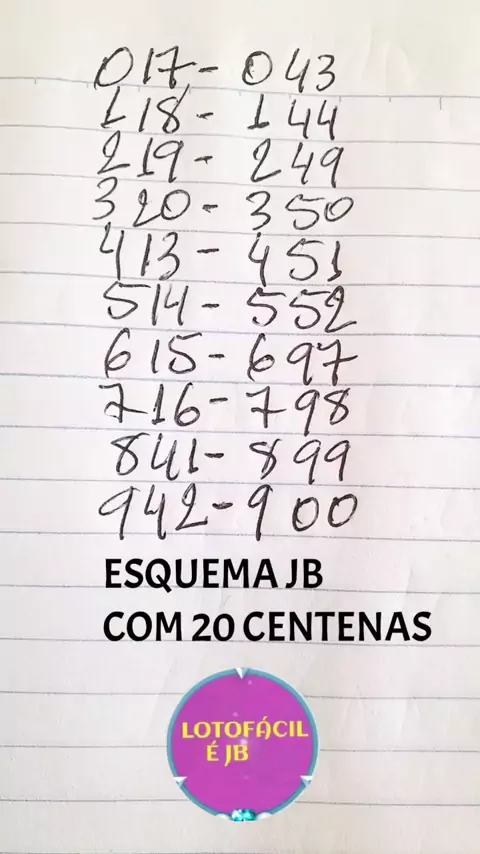 017- 043
118- 144
219- 249
320- 350
413- 451
514- 552
615- 697
716- 798
841- 899
942- 900
ESQUEMA JB
COM 20 CENTENAS
LOTOFÁCIL
É JB